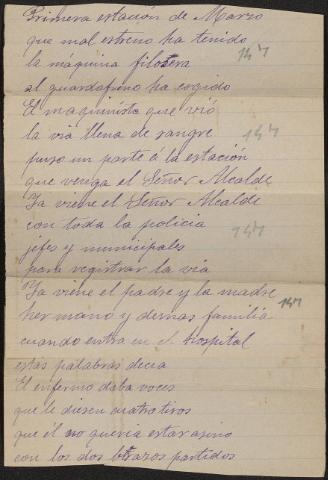 Primera estación de Marzo
que mal estreno ha tenido
la maquina filosera
147
al guardafreno ha cogido
El maquinista que vió
la via llena de sangre
147
puso un parte á la estación
que venga el Señor Alcalde
Ya viene el Señor Alcalde
con toda la policia
147
jefes y municipales
para registrar la via
Ya viene el padre y la madre
147
hermano y demas familia
cuando entra en el hospital
estas palabras decia
El enfermo daba voces
que le diesen cuatro tiros
que él no queria estar asino
con los dos brazos partidos